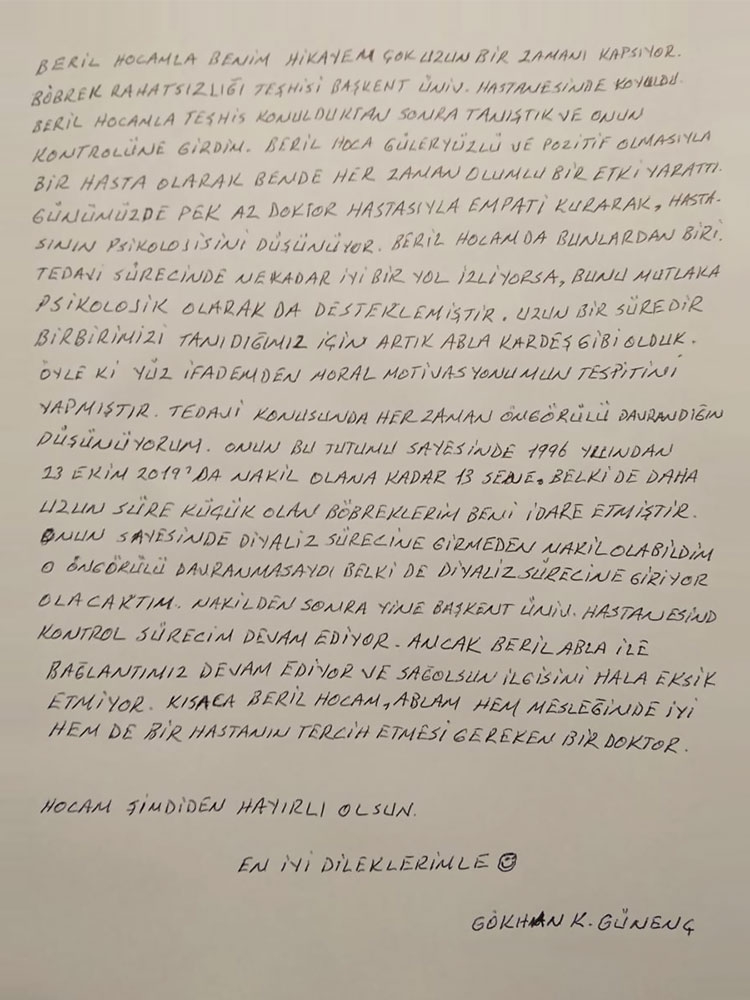 BERİL HOCAMLA BENİM HİKAYEM ÇOK UZUN BİR ZAMANI KAPSIYOR.
BÖBREK RAHATSIZLIĞI TEŞHİSİ BAŞKENT ÜNİV. HASTANESİNDE KOYULDU.
BERİL HOCAMLA TEŞHİS KONULDUKTAN SONRA TANIŞTIK VE ONUN
KONTROLÜNE GİRDİM. BERİL HOCA GÜLERYÜZLÜ VE POZİTİF OLMASIYLA
BİR HASTA OLARAK BENDE HER ZAMAN OLUMLU BİR ETKİ YARATTI.
GÜNÜMÜZDE PEK AZ DOKTOR HASTASIYLA EMPATİ KURARAK, HASTA-
SININ PSİKOLOSİSİNİ DÜŞÜNÜYOR. BERİL HOCAM DA BUNLARDAN BİRİ.
TEDAVİ SÜRECİNDE NEKADAR İYİ BİR YOL İZLİYORSA, BUNU MUTLAKA
PSİKOLOJİK OLARAK DA DESTEKLEMİŞTİR. UZUN BİR SÜREDİR
BİRBİRİMİZİ TANIDIĞIMIZ İÇİN ARTIK ABLA KARDEŞ GİBİ OLDUK.
ÖYLE Kİ YÜZ İFADEMDEN MORAL MOTİVASYONUMUN TESPİTİNİ
YAPMIŞTIR. TEDAVİ KONUSUNDA HER ZAMAN ÖNGÖRÜLÜ DAVRANDIĞIN
DÜŞÜNÜYORUM. ONUN BU TUTUMU SAYESİNDE 1996 YILINDAN
23 EKİM 2019'DA NAKİL OLANA KADAR 13 SENE. BELKİ DE DAHA
UZUN SÜRE KÜÇÜK OLAN BÖBREKLERİM BENİ İDARE ETMİŞTİR.
ONUN SAYESİNDE DİYALİZ SÜRECİNE GİRMEDEN NAKİL OLABİLDİM
O ÖNGÖRÜLÜ DAVRANMASAYDI BELKİ DE DİYALİZ SÜRECİNE GİRİYOR
OLACAKTIM. NAKİLDEN SONRA YİNE BAŞKENT ÜNİV. HASTANESİND
KONTROL SÜRECİM DEVAM EDİYOR. ANCAK BERİL ABLA İLE
BAĞLANTIMIZ DEVAM EDİYOR VE SAĞOLSUN İLGİSİNİ HALA EKSİK
ETMİYOR. KISACA BERİL HOCAM, ABLAM HEM MESLEĞİNDE İYİ
HEM DE BİR HASTANIN TERCİH ETMESİ GEREKEN BİR DOKTOR.
HOCAM ŞİMDİDEN HAYIRLI OLSUN.
EN İYİ DİLEKLERİMLE ☺
GÖKHAN K. GÜNENÇ